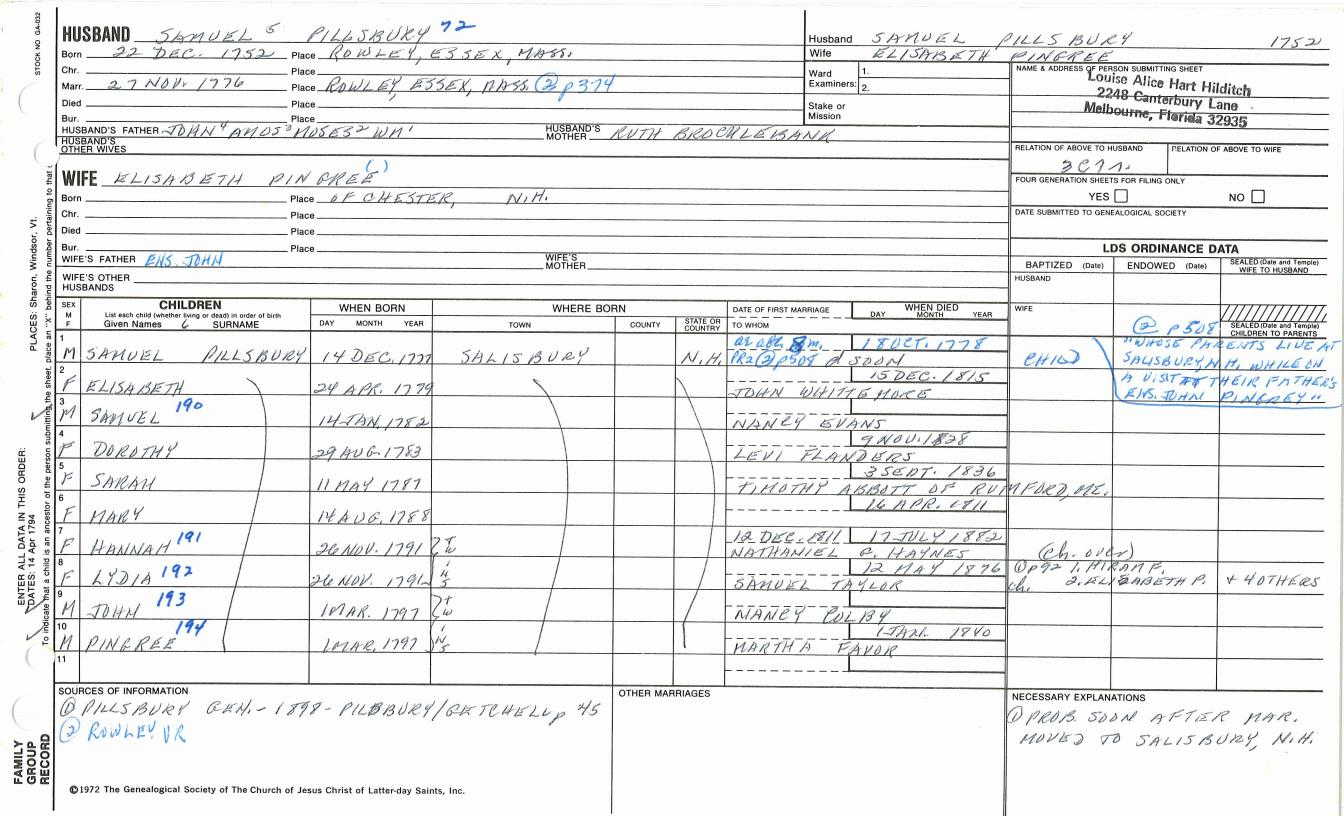 STOCK NO GA-032
HUSBAND SAMUEL 5 PILLSBURY 72
Born 22 DEC. 1752 Place ROWLEY, ESSEX, MASS.
Chr. Place
Marr. 27 NOV. 1776 Place ROWLEY, ESSEX, MASS. ② p374
Died Place
Bur. Place
HUSBAND'S FATHER JOHN4 AMOS3 MOSES2 WM1 HUSBAND'S MOTHER RUTH BROCKLEBANK
HUSBAND'S OTHER WIVES
Husband SAMUEL PILLSBURY 1752
Wife ELISABETH PINGREE
Ward Examiners: 1.
2.
Stake or Mission
NAME & ADDRESS OF PERSON SUBMITTING SHEET
Louise Alice Hart Hilditch
2248 Canterbury Lane
Melbourne, Florida 32935
RELATION OF ABOVE TO HUSBAND RELATION OF ABOVE TO WIFE
FOUR GENERATION SHEETS FOR FILING ONLY
YES NO
DATE SUBMITTED TO GENEALOGICAL SOCIETY
WIFE ELISABETH PINGREE ( )
Born Place OF CHESTER, N.H.
Chr. Place
Died Place
Bur. Place
WIFE'S FATHER ENS. JOHN WIFE'S MOTHER
WIFE'S OTHER HUSBANDS
LDS ORDINANCE DATA
BAPTIZED (Date) ENDOWED (Date) SEALED (Date and Temple) WIFE TO HUSBAND
HUSBAND
WIFE
SEALED (Date and Temple) CHILDREN TO PARENTS
SEX M F CHILDREN List each child (whether living or dead) in order of birth Given Names 6 SURNAME WHEN BORN DAY MONTH YEAR WHERE BORN TOWN COUNTY STATE OR COUNTRY DATE OF FIRST MARRIAGE TO WHOM WHEN DIED DAY MONTH YEAR
1 M SAMUEL PILLSBURY 14 DEC. 1777 SALISBURY N.H. 18 OCT. 1778
PR2 ② p508 d SOON
CHILD
② p508
"WHOSE PARENTS LIVE AT
SALISBURY, N.H. WHILE ON
A VISIT THEIR FATHER'S
ENS. JOHN PINGREY"
2 F ELISABETH 24 APR. 1779 15 DEC. 1815
JOHN WHITTEMORE
3 M SAMUEL 190 14 JAN. 1782
NANCY EVANS
4 F DOROTHY 29 AUG. 1783 9 NOV. 1838
LEVI FLANDERS
5 F SARAH 11 MAY 1787 3 SEPT. 1836
TIMOTHY ABBOTT OF RUMFORD, ME.
6 F MARY 14 AUG. 1788 16 APR. 1811
7 F HANNAH 191 26 NOV. 1791 TWINS 12 DEC. 1811 17 JULY 1882
NATHANIEL C. HAYNES
8 F LYDIA 192 26 NOV. 1791 12 MAY 1876
SAMUEL TAYLOR
(Ch. over)
① p92 1. HIRAM F.
ch. 2. ELIZABETH P. + 4 OTHERS
9 M JOHN 193 1 MAR. 1797 TWINS
NANCY COLBY
10 M PINGREE 194 1 MAR. 1797 1 JAN. 1840
MARTHA FAVOR
11
SOURCES OF INFORMATION
① PILLSBURY GEN. - 1898 - PILSBURY/GETCHELL p 45
② ROWLEY VR
OTHER MARRIAGES
NECESSARY EXPLANATIONS
① PROB. SOON AFTER MAR.
MOVED TO SALISBURY, N.H.
©1972 The Genealogical Society of The Church of Jesus Christ of Latter-day Saints, Inc.
FAMILY GROUP RECORD
ENTER ALL DATA IN THIS ORDER:
DATES: 14 Apr 1794
PLACES: Sharon, Windsor, Vt.
To indicate that a child is an ancestor of the person submitting the sheet, place an "X" behind the number pertaining to that